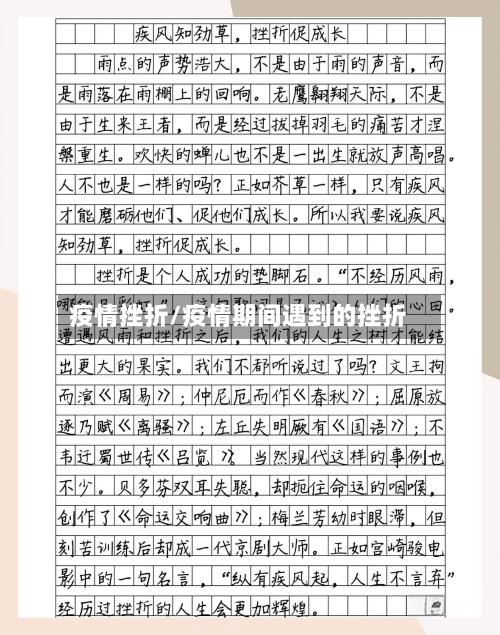 疾风知劲草，挫折促成长
雨点的声势浩大，不是由于雨的声音，而
是雨落在雨棚上的回响。老鹰翱翔天际，不是
由于生来王者，而是经过拔掉羽毛的痛苦才涅
槃重生。欢快的蝉儿也不是一出生就放声高唱。
人不也是一样的吗？正如芥草一样，只有疾风
才能磨砺他们、促他们成长。所以我要说疾风
知劲草，挫折促成长。
挫折是个人成功的垫脚石。“不经历风雨，
疫情挫折/疫情期间遇到的挫折
遭遇风雨和挫折之后，我们的人生之树才能结
出更大的果实。我们不都听说过了吗？文王拘
而演《周易》；仲尼厄而作《春秋》；屈原放
逐乃赋《离骚》；左丘失明厥有《国语》；不
韦迁蜀世传《吕览》。当然现代这样的事例也
不少。贝多芬双耳失聪，却扼住命运的咽喉，
创作了《命运交响曲》；梅兰芳幼时眼滞，但
刻苦训练后却成一代京剧大师。正如宫崎骏电
影中的一句名言，“纵有疾风起，人生不言弃”
经历过挫折的人生会更加辉煌。